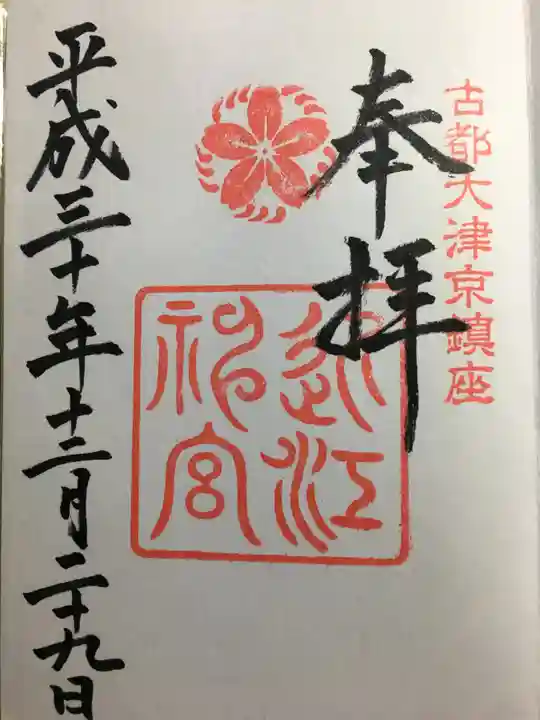 古都大津京鎮座
奉拝
近江
神宮
平成三十年十二月二十九日